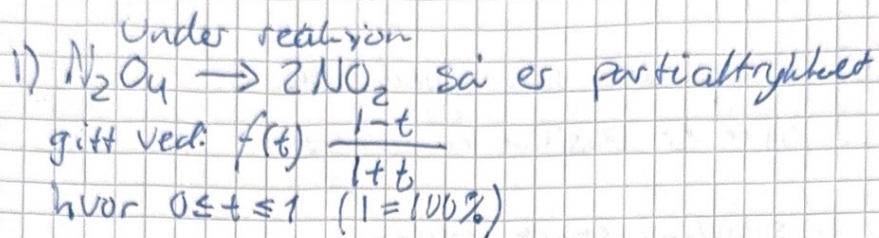 Under reaksjon
1) N₂O₄ → 2NO₂ så er partialtrykket
gitt ved: f(t) (1-t)/(1+t)
hvor 0≤t≤1 (1=100%)